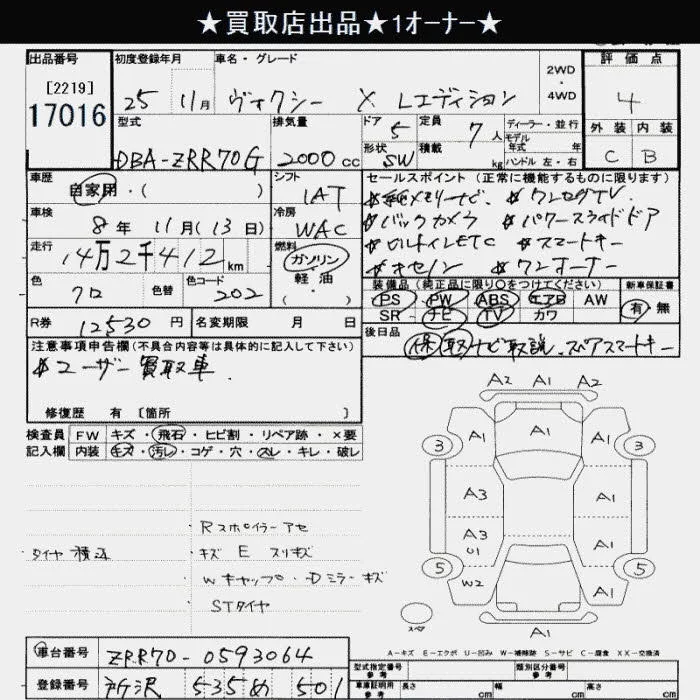 ★買取店出品★1オーナー★
出品番号 初度登録年月 車名・グレード 2WD・4WD 評価点
[2219]
17016
25 11月 ヴォクシー X Lエディション 4
型式 排気量 ドア 5 定員 7人 ディーラー・並行 外装 内装
モデル年式 年式
DBA-ZRR70G 2000cc 形状 SW 積載 kg ハンドル 左・右 C B
車歴 シフト セールスポイント(正常に機能するものに限ります)
自家用・( ) IAT #純メモリーナビ. #ワンセグTV
車検 冷房 #バックカメラ #パワースライドドア
8年 11月(13日) WAC #ビルトインETC #スマートキー
走行 燃料 #キセノン #ワンオーナー
14万2千412km ガソリン・軽油・( )
装備品(純正品に限り○をつけてください) 新車保証書
色 クロ 色替 色コード 202 PS PW ABS エアB AW 有・無
SR ナビ TV カワ
R券 12530円 名変期限 月 日 後日品
保 取 ナビ取説. スペアスマートキー
注意事項申告欄(不具合内容等は具体的に記入して下さい)
#ユーザー買取車.
修復歴 有〔箇所 〕
検査員 FW キズ・飛石・ヒビ割・リペア跡・×要
記入欄 内装 キズ・汚レ・コゲ・穴・スレ・キレ・破レ
A2 A1 A2
3 A1 A1 A1 3
A3 A1
・Rスポイラーアセ
タイヤ積込 ・キズ E スリキズ
A3 U1 A1
・Wキャップ・Dミラーキズ
5 W2 A1 5
・STタイヤ
スペア
A1
A-キズ E-エクボ U-凹み W-補修跡 S-サビ C-腐食 XX-交換済
車台番号 ZRR70-0593064
型式指定番号 参考 類別区分番号 参考
登録番号 所沢 535 め 501
車庫証明用 参考 長さ cm 幅 cm 高さ cm